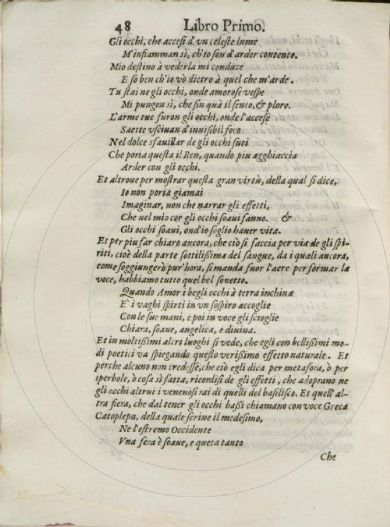 48 Libro Primo.
Gli occhi, che accesi d'vn celeste lume
M'infiamman sì, ch'io son d'arder contento.
Mio destino à vederla mi conduce
E so ben ch'io vò dietro à quel che m'arde.
Tu stai ne gli occhi, onde amorose vespe
Mi pungon sì, che fin quà il sento, & ploro.
L'arme tue furon gli occhi, onde l'accese
Saette vsciuan d'inuisibil foco
Nel dolce sfauillar de gli occhi suoi
Che poria questa il Ren, quando piu agghiaccia
Arder con gli occhi.
Et altroue per mostrar questa gran virtù, della qual si dice,
Io non poria giamai
Imaginar, non che narrar gli effetti,
Che nel mio cor gli occhi soaui fanno. &
Gli occhi soaui, ond'io soglio hauer vita.
Et per piu far chiaro ancora, che ciò si faccia per via de gli spi-
riti, cioè della parte sottilissima del sangue, da i quali ancora,
come soggiungerò pur'hora, si manda fuor l'aere per formar la
voce, habbiamo tutto quel bel sonetto.
Quando Amor i begli occhi à terra inchina
E' i vaghi spirti in vn sospiro accoglie
Con le sue mani, e poi in voce gli scioglie
Chiara, soaue, angelica, e diuina.
Et in moltissimi altri luoghi si vede, che egli con bellissimi mo-
di poetici va spiegando questo verissimo effetto naturale. Et
perche alcuno non credesse, che ciò egli dica per metafora, ò per
iperbole, ò cosa sì fatta, ricordisi de gli effetti, che adoprano ne
gli occhi altrui i venenosi rai di quelli del basilisco. Et quell'al-
tra fiera, che dal tener gli occhi bassi chiamano con voce Greca
Catoplepa, della quale scriue il medesimo,
Ne l'estremo Occidente
Vna fera è soaue, e queta tanto
Che